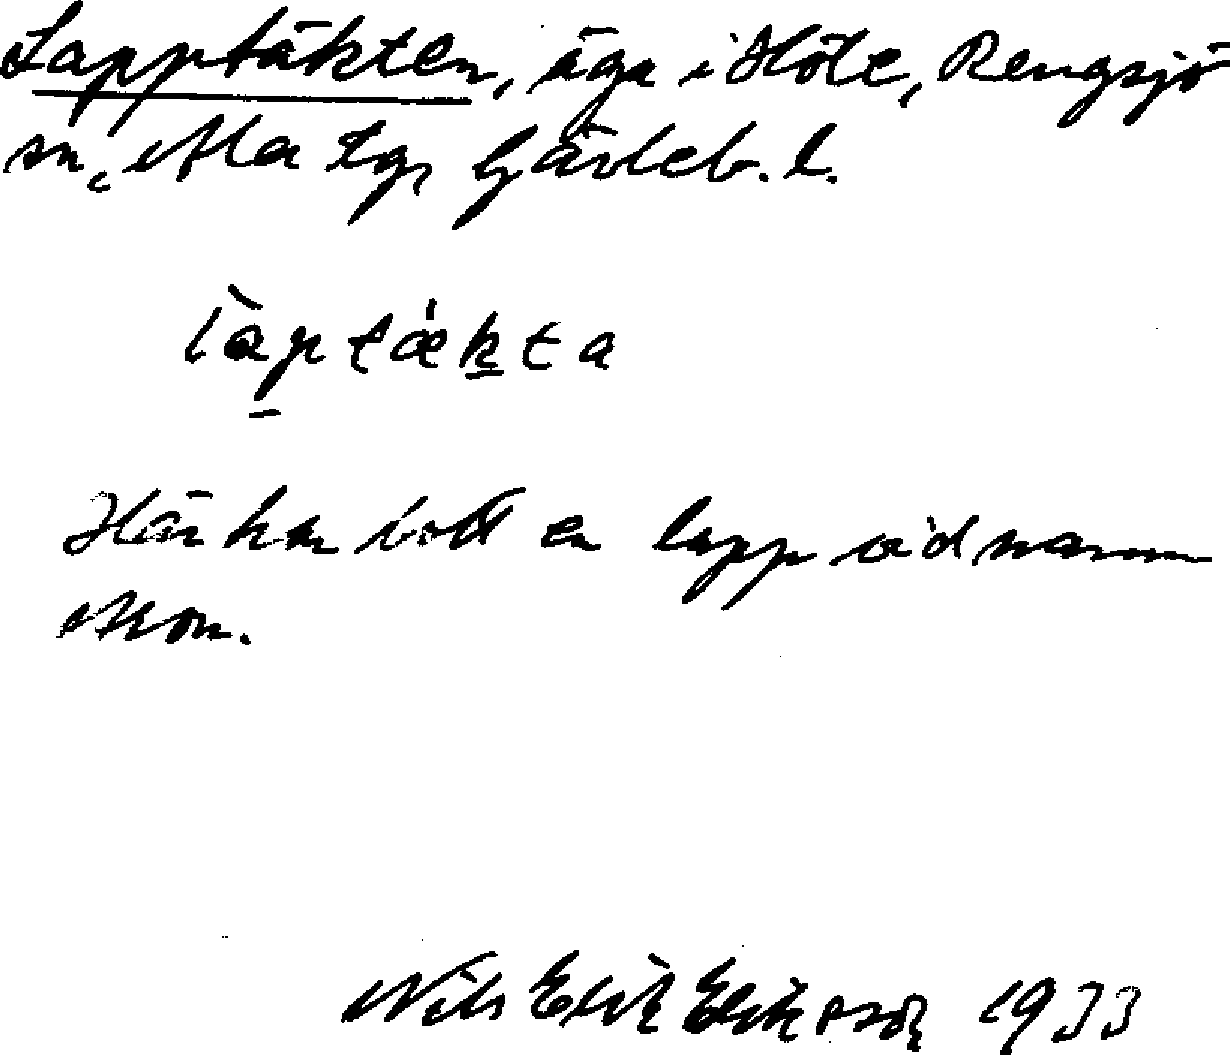 Lapptäkten, äga i Höle, Rengsjö
sn, Ala tg, Gävleb. l.
làptǽkta
Här har bott en lapp vid namn
Aron.
Nils Erik Eriksson 1933